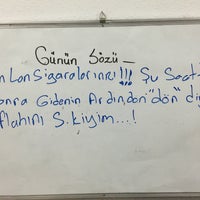 Günün Sözü _
n Lan Sigaralarınızı!!! Şu Saat
onra Gidenin Ardından "dön" di
flahını S.kiyim...!